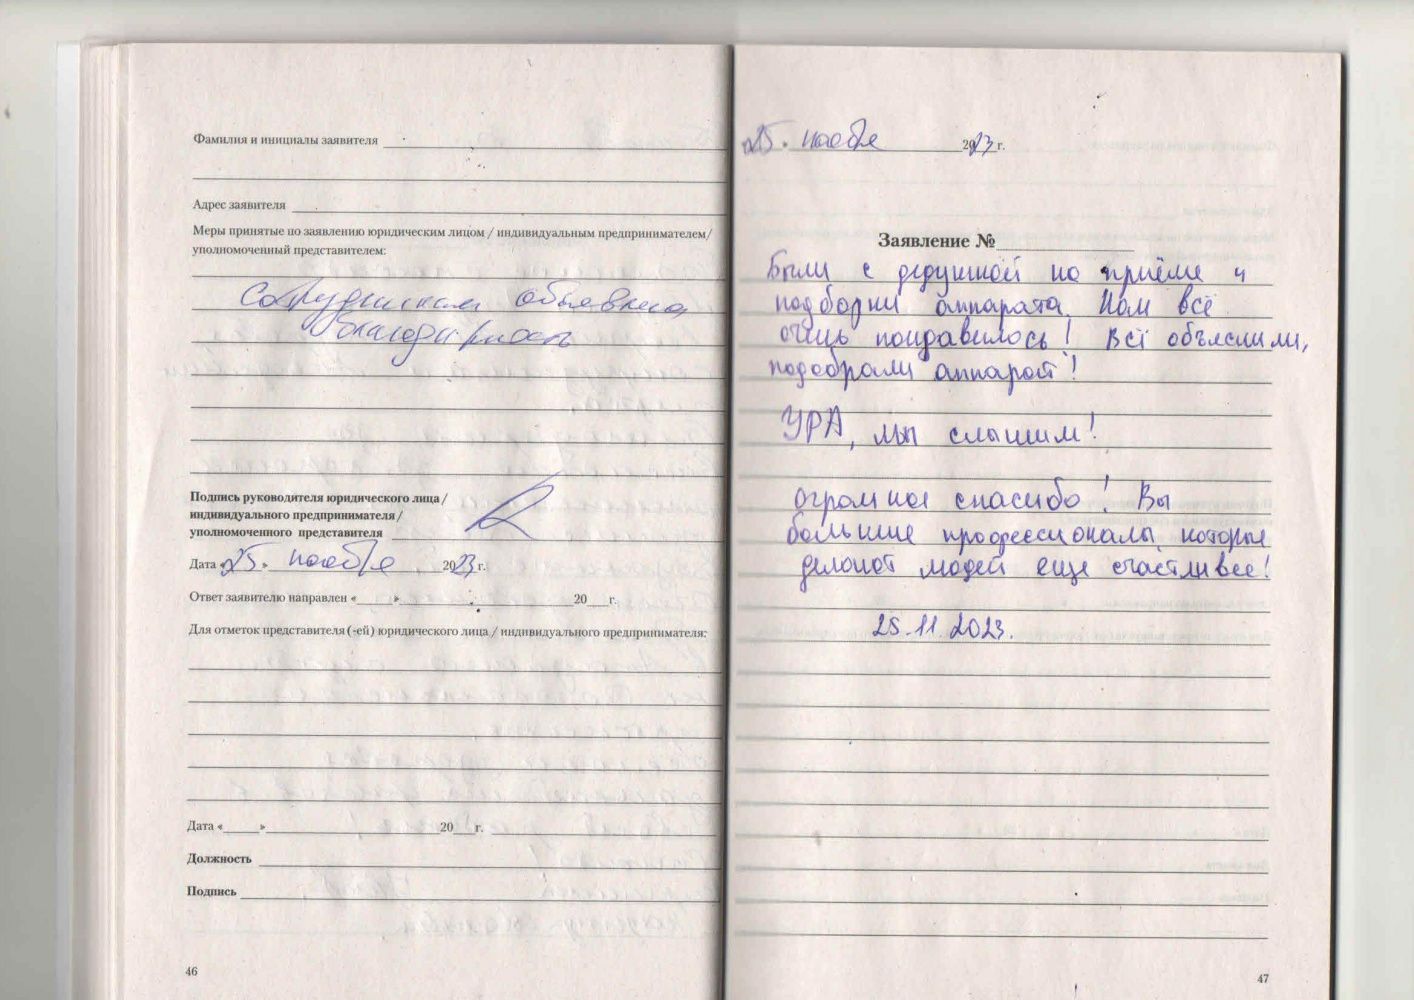 Фамилия и инициалы заявителя
Адрес заявителя
Меры принятые по заявлению юридическим лицом / индивидуальным предпринимателем/
уполномоченный представителем:
Сотрудникам объявлена
благодарность
Подпись руководителя юридического лица /
индивидуального предпринимателя /
уполномоченного представителя
Дата «25» ноября 2023 г.
Ответ заявителю направлен « » 20 г.
Для отметок представителя (-ей) юридического лица / индивидуального предпринимателя:
Дата « » 20 г.
Должность
Подпись
46
25 ноября 2023 г.
Заявление №
Были с дедушкой на приёме и
подборки аппарата. Нам всё
очень понравилось! Всё объяснили,
подобрали аппарат!
УРА, мы слышим!
огромное спасибо! Вы
большие профессионалы, которые
делают людей еще счастливее!
25.11.2023.
47